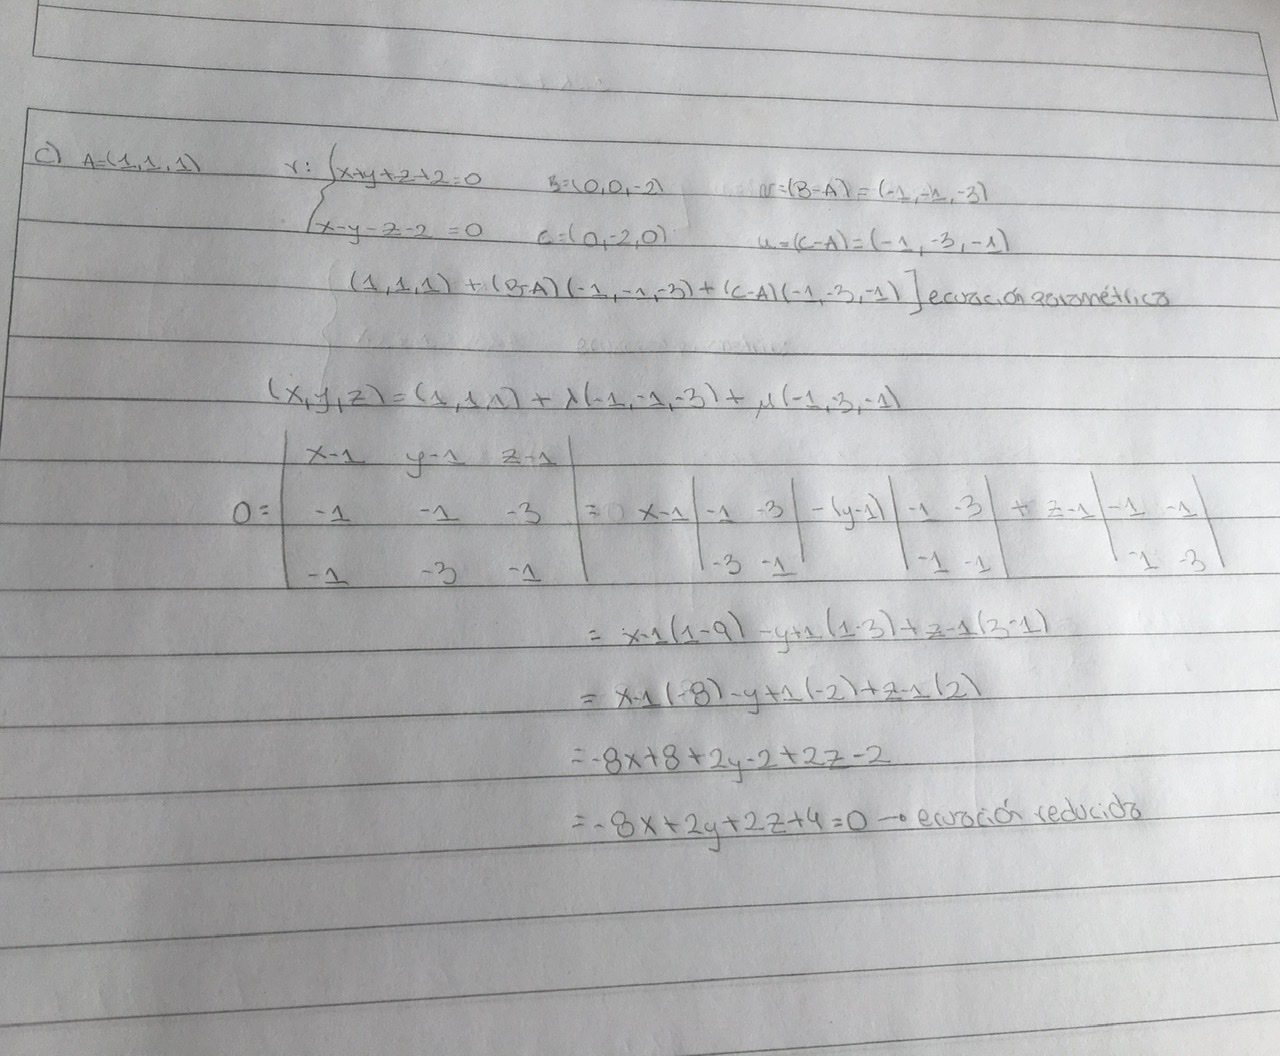 c) A=(1,1,1) r: { x+y+z+2=0 B=(0,0,-2) v=(B-A)=(-1,-1,-3)
x-y-z-2=0 C=(0,-2,0) u=(C-A)=(-1,-3,-1)
(1,1,1) + (B-A)(-1,-1,-3) + (C-A)(-1,-3,-1) ] ecuación paramétrica
(x,y,z)=(1,1,1) + λ(-1,-1,-3) + μ(-1,-3,-1)
0= | x-1 y-1 z-1 |
| -1 -1 -3 | = x-1 | -1 -3 | -(y-1) | -1 -3 | + z-1 | -1 -1 |
| -1 -3 -1 | | -3 -1 | | -1 -1 | | -1 -3 |
= x-1(1-9) -y+1(1-3)+z-1(3-1)
= x-1(-8)-y+1(-2)+z-1(2)
=-8x+8+2y-2+2z-2
=-8x+2y+2z+4=0 → ecuación reducida